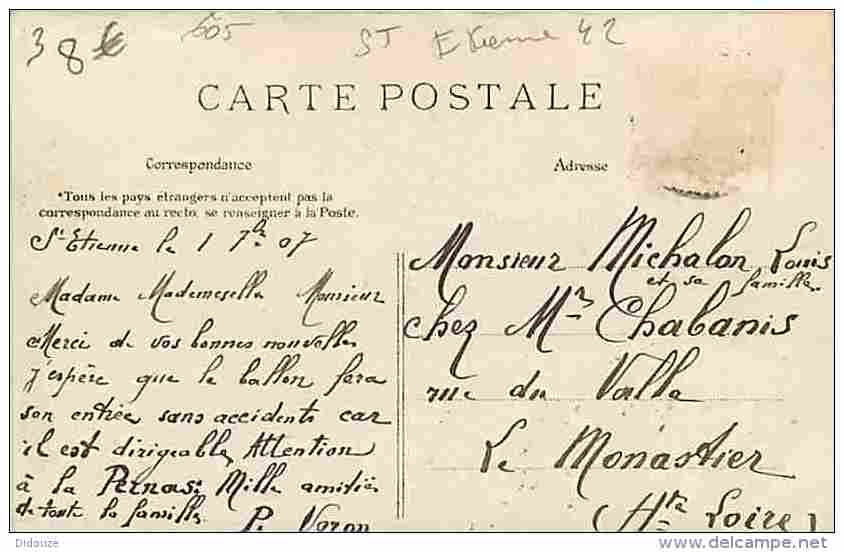 38
605
St Etienne 42
CARTE POSTALE
Correspondance
Adresse
*Tous les pays étrangers n'acceptent pas la
correspondance au recto, se renseigner à la Poste.
St Etienne le 1 7bre 07
Madame Mademoselle Monsieur
Merci de vos bonnes nouvelles
j'espère que le ballon fera
son entrée sans accidents car
il est dirigeable, Attention
à la Mille amitiés
de toute la famille
P. Voron
Monsieur Michalon Louis
et sa famille
chez Mr Chabanis
rue du Valla
Le Monastier
(Hte Loire)
Didouze
www.delcampe.net